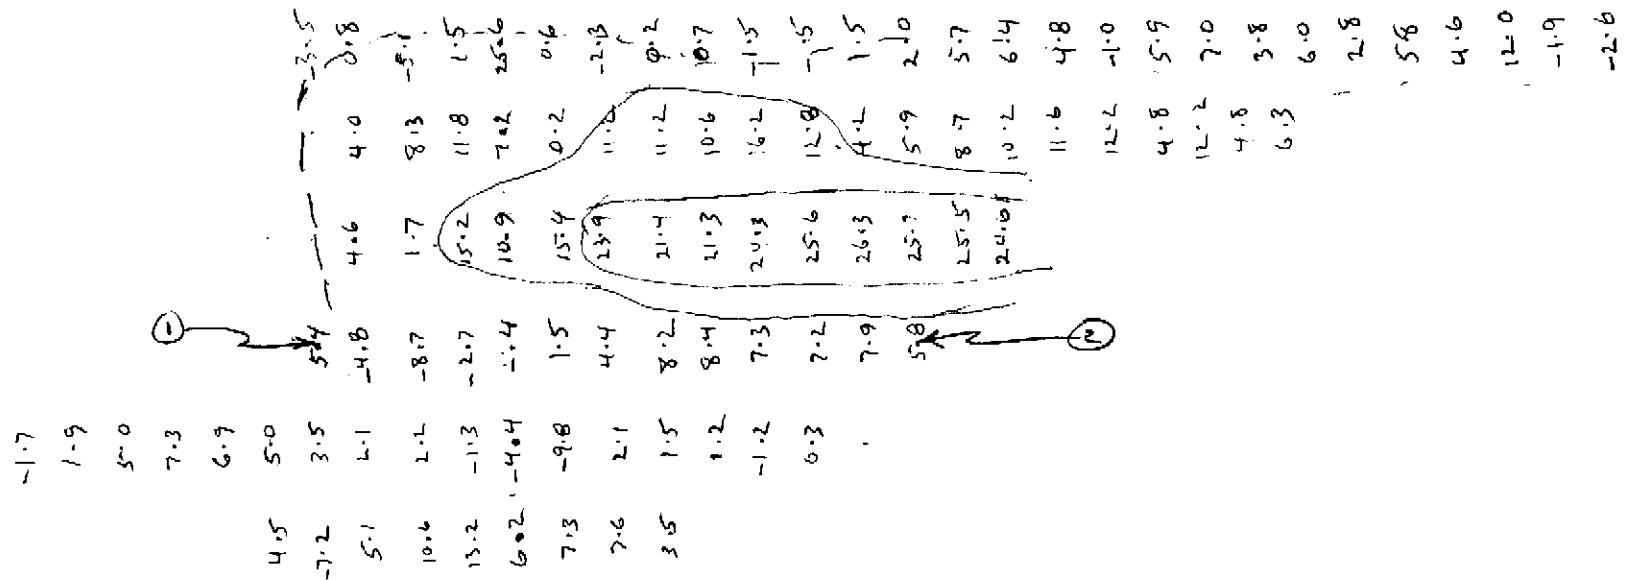 -3.5 0.8 -5.1 1.5 25.6 0.6 -2.13 0.2 10.7 -1.5 -1.5 1.5 2.0 5.7 6.4 4.8 -1.0 5.9 7.0 3.8 6.0 2.8 5.8 4.6 12.0 -1.9 -2.6
4.0 8.3 11.8 7.2 0.2 11.2 11.2 10.6 16.2 12.8 4.2 5.9 8.7 10.2 11.6 12.2 4.8 12.2 4.8 6.3
4.6 1.7 15.2 10.9 15.4 23.9 21.4 21.3 24.3 25.6 26.3 25.7 25.5 24.6
① 5.4 -4.8 -8.7 -2.7 -.4 1.5 4.4 8.2 8.4 7.3 7.2 7.9 5.8 ②
-1.7 1.9 5.0 7.3 6.9 5.0 3.5 2.1 2.2 -1.3 -4.4 -9.8 2.1 1.5 1.2 -1.2 0.3
4.5 -7.2 5.1 10.6 13.2 6.2 7.3 7.6 3.5